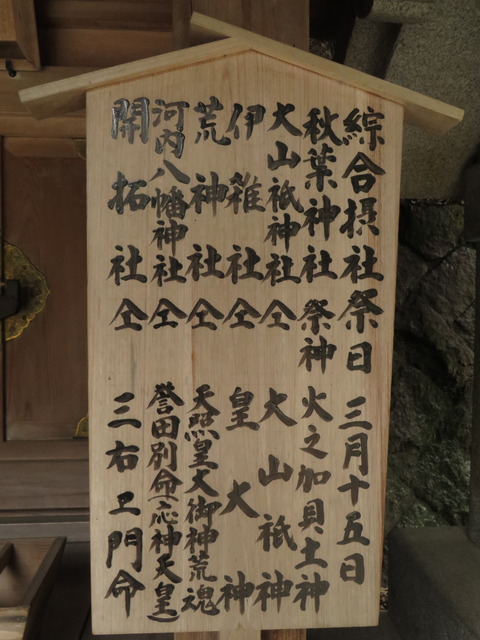 綜合摂社祭日 三月十五日
秋葉神社 祭神 火之加具土神
大山祇神社 仝 大山祇神
伊雑社 仝 皇大神
荒神社 仝 天照皇大御神荒魂
河内八幡神社 仝 誉田別命(応神天皇)
開拓社 仝 三右ヱ門命